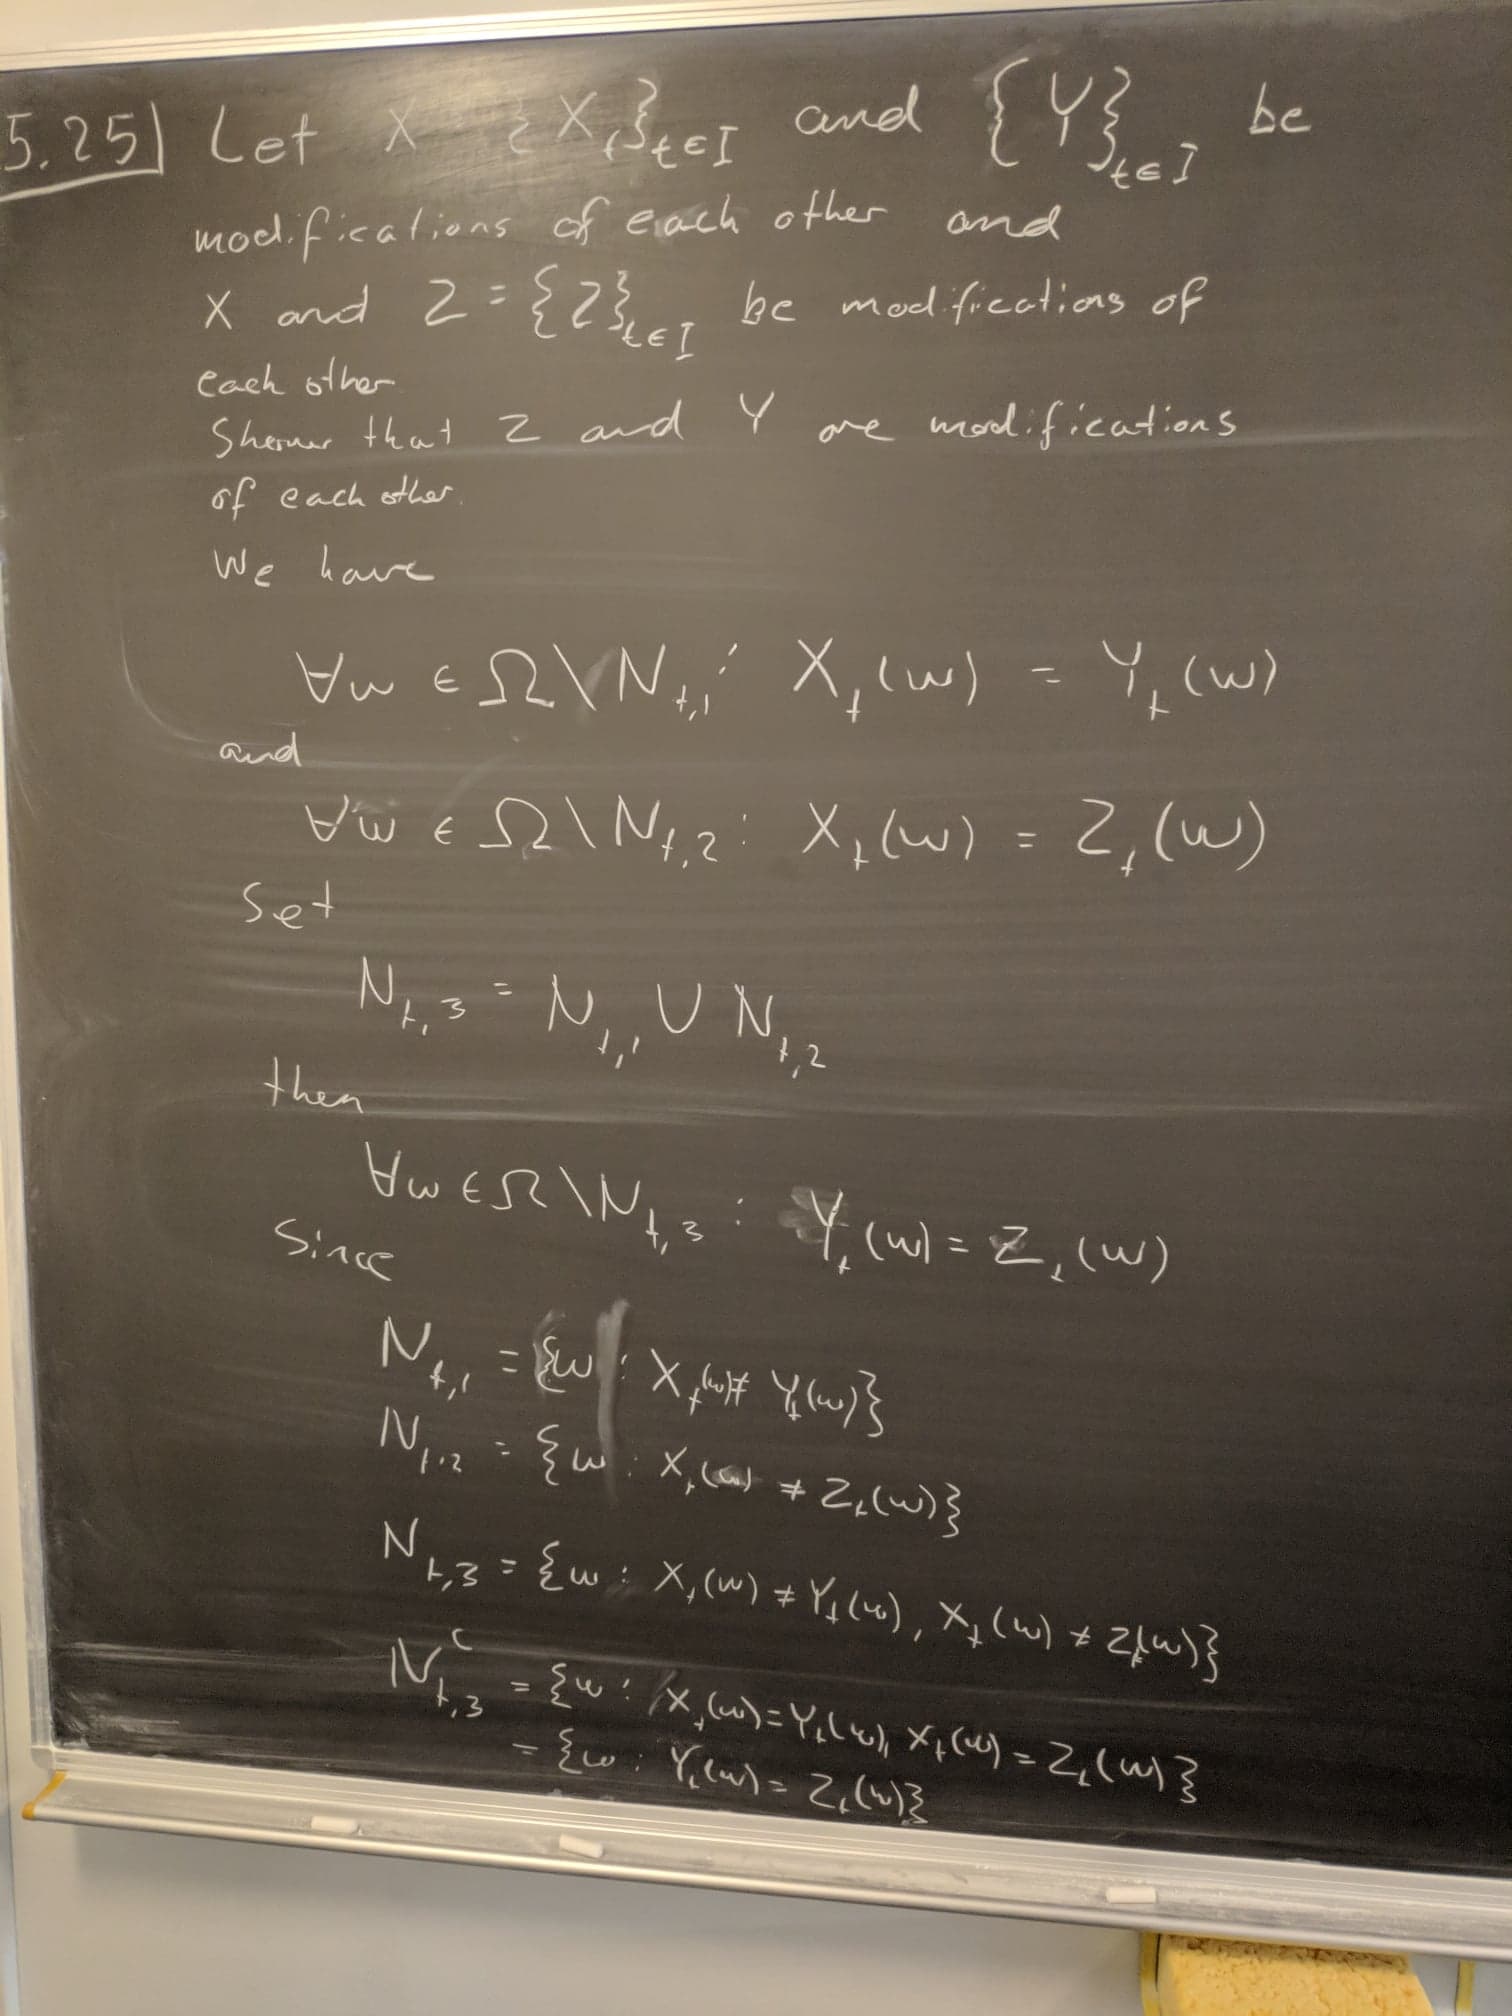 5.25) Let X {X_t}_{t∈I} and {Y}_{t∈I} be
modifications of each other and
X and Z = {Z}_{t∈I} be modifications of
each other
that Z and Y are modifications
of each other.
We have
∀ω ∈ Ω\N_{t,1}: X_t(ω) = Y_t(ω)
and
∀ω ∈ Ω\N_{t,2}: X_t(ω) = Z_t(ω)
Set
N_{t,3} = N_{t,1} ∪ N_{t,2}
then
∀ω ∈ Ω\N_{t,3}: Y_t(ω) = Z_t(ω)
Since
N_{t,1} = {ω : X_t(ω) ≠ Y_t(ω)}
N_{t,2} = {ω : X_t(ω) ≠ Z_t(ω)}
N_{t,3} = {ω : X_t(ω) ≠ Y_t(ω), X_t(ω) ≠ Z_t(ω)}
N_{t,3}^c = {ω : X_t(ω) = Y_t(ω), X_t(ω) = Z_t(ω)}
= {ω : Y_t(ω) = Z_t(ω)}